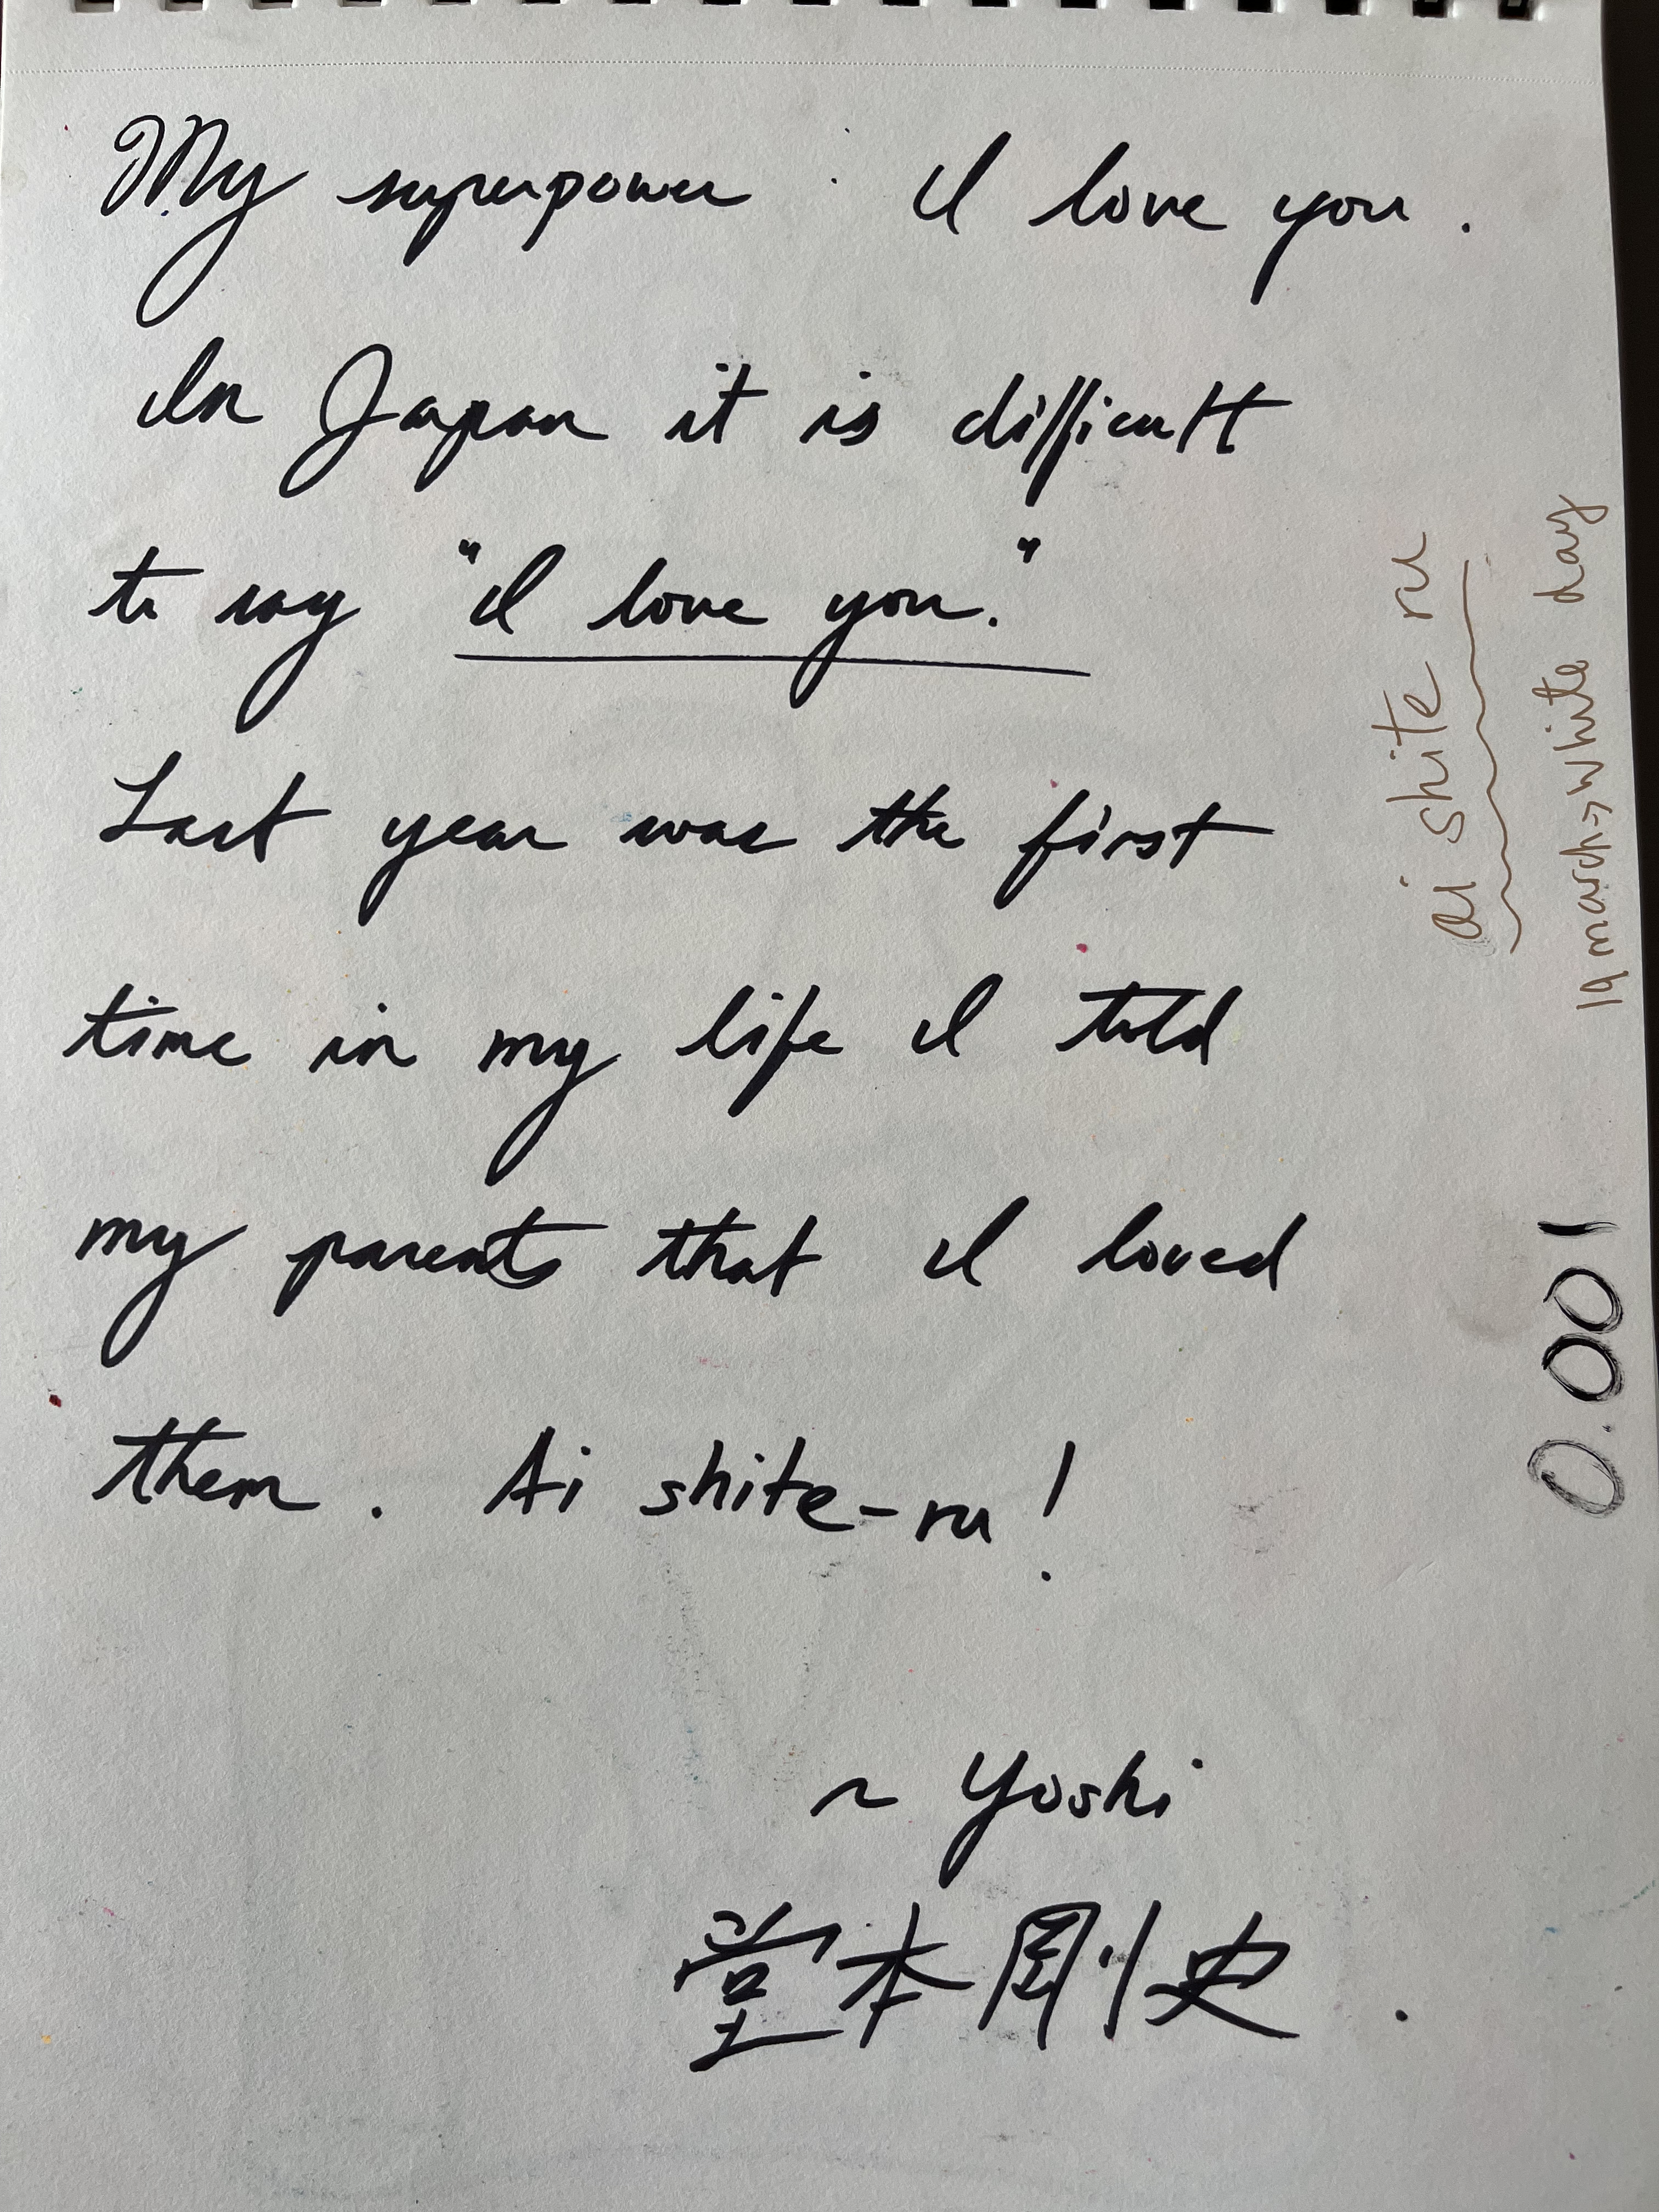 My superpower : I love you.
In Japan it is difficult
to say "I love you."
Last year was the first
time in my life I told
my parents that I loved
them. Ai shite-ru!
~ Yoshi
堂本剛史.
ai shite ru
19 march → white day
0.001